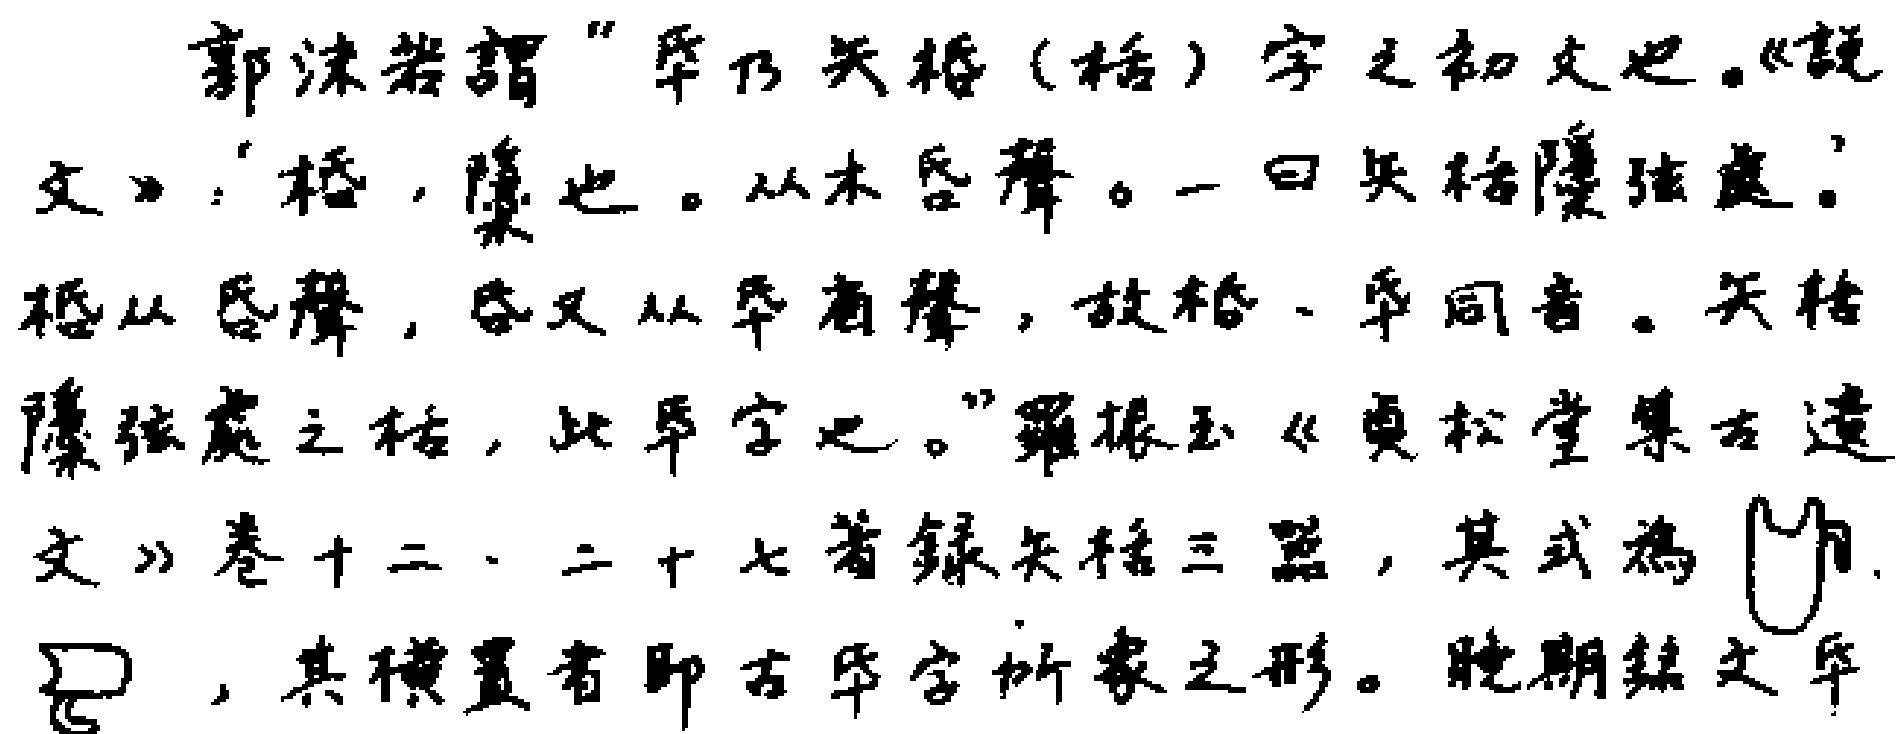 郭沫若謂“氒乃矢桰（栝）字之初文也。《説
文》：‘桰，檃也。从木𠯑聲。一曰矢栝檃弦處。’
桰从𠯑聲，𠯑又从氒省聲，故桰、氒同音。矢栝
檃弦處之栝，此氒字也。”羅振玉《貞松堂集古遺
文》卷十二·二十七著録矢栝三器，其式為
，其橫置者即古氒字所象之形。晚期銘文氒